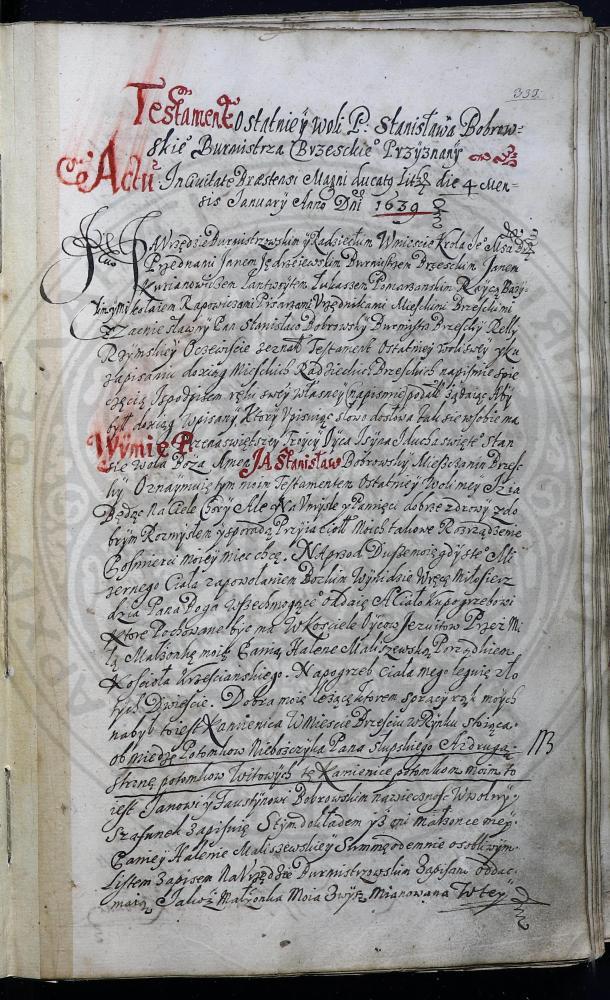 332
Testament Ostatniey Woli P. Stanisława Bobrow=
skie° Burmistrza Brzeskie° Przyznany
Actū In Civitate Bræstensi Magni ducatg Litt die 4 Men=
sis January Anno Dni 1639
Urzędzie Burmistrzowskim y Radzieckim W miescie Krola Je° Msci
Przednami Janem Jędrzeiewskim Burmistrzem Brzeskim Janem
Kurianowiczem Lantwoytem Łukaszem Pomarzanskim Raycą Bazy
Mikołaiem Rapowiczami Pisarzami Urzędnikami Mieskimi Brzeskimi
Zacnie sławny Pan Stanisław Bobrowsky Burmistrz Brzesky Relij
Rzymskiey Oczewiscie zeznał Testament Ostatniey Woli swey y ku
Zapisaniu do xiąg Mieskich Radzieckich Brzeskich na pismie s pie
częcią y s podpisem ręki swey własney napismie podał żądaiąc Aby
był do xiąg wpisany Ktory Vpisuiąc słowo do słowa tak sie w sobie ma
Wÿmię P. Przenaswiętszey Troycy Oyca y Syna y Ducha swięte° Stan
sie wola Boża Amen JA Stanisław Bobrowsky Mieszczanin Brzes
ky Oznaymuię tym moim Testamentem Ostatniey Woli mey Iż ia
Będąc na Ciele Chory Ale Na Vmysle y Pamięci dobrze zdrowy z do
brym Rozmysłem y s poradą Przyiacioł Moich takowe Rozrządzenie
Po smierci moiey mieć chcę. NAprzod Duszę moię gdy s te° Mi
zernego Ciała za powołaniem Bozkim Wynidzie W ręce Miłosier
dzia Pana Boga Wszechmogące° oddaię A Ciało ku pogrzebowi
Ktore pochowane być ma W Kosciele Oycow Jezuitow Przez Mi
łą Małżonkę moię Panią Halenę Maliszewską Porządkiem
Kosciola Krzescianskiego. Na pogrzeb Ciała mego leguię zło
tych Dwiescie. Dobra moie leżące ktorem s pracy rąk moych
nabył to iest Kamienica W Miescie Brzesciu w Rynku stoiąca
ob miedzę Potomkow Nieboszczyka Pana Słupskiego A z drugą
stronę potomkow Witowych tę Kamienicę potomkom moim to
iest Janowi y Faustynowi Bobrowskim na wiecznosc W wolny
Szafunek Zapisuię S tym dokładem yż oni małżonce mey
Paniey Halenie Maliszewskiey Summę odemnie osobliwym
Listem Zapisem Na Vrzędzie Burmistrzowskim Zapisaną oddać
maią Jakoż Małżonka Moia Zwyż Mianowana W tey